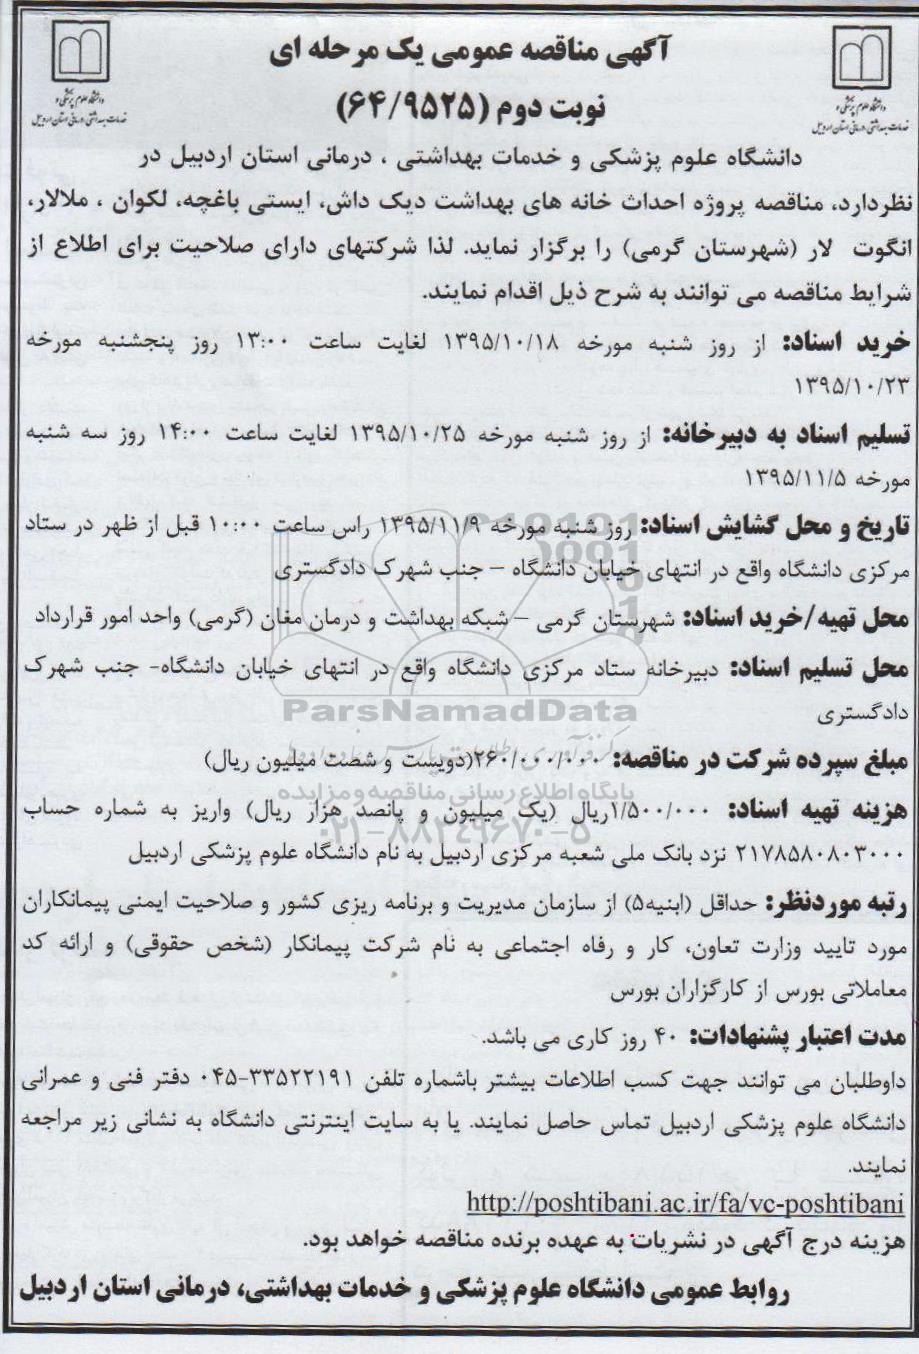 آگهی مناقصه عمومی یک مرحله ای
نوبت دوم (۶۴/۹۵۲۵)
دانشگاه علوم پزشکی و
خدمات بهداشتی درمانی استان اردبیل
دانشگاه علوم پزشکی و
خدمات بهداشتی درمانی استان اردبیل
دانشگاه علوم پزشکی و خدمات بهداشتی ، درمانی استان اردبیل در
نظردارد، مناقصه پروژه احداث خانه های بهداشت دیک داش، ایستی باغچه، لکوان ، ملالار،
انگوت لار (شهرستان گرمی) را برگزار نماید. لذا شرکتهای دارای صلاحیت برای اطلاع از
شرایط مناقصه می توانند به شرح ذیل اقدام نمایند.
خرید اسناد: از روز شنبه مورخه ۱۳۹۵/۱۰/۱۸ لغایت ساعت ۱۳:۰۰ روز پنجشنبه مورخه
۱۳۹۵/۱۰/۲۳
تسلیم اسناد به دبیرخانه: از روز شنبه مورخه ۱۳۹۵/۱۰/۲۵ لغایت ساعت ۱۴:۰۰ روز سه شنبه
مورخه ۱۳۹۵/۱۱/۵
تاریخ و محل گشایش اسناد: روز شنبه مورخه ۱۳۹۵/۱۱/۹ راس ساعت ۱۰:۰۰ قبل از ظهر در ستاد
مرکزی دانشگاه واقع در انتهای خیابان دانشگاه – جنب شهرک دادگستری
محل تهیه/خرید اسناد: شهرستان گرمی – شبکه بهداشت و درمان مغان (گرمی) واحد امور قرارداد
محل تسلیم اسناد: دبیرخانه ستاد مرکزی دانشگاه واقع در انتهای خیابان دانشگاه- جنب شهرک
دادگستری
ParsNamadData
مبلغ سپرده شرکت در مناقصه: ۲۶۰/۰۰۰/۰۰۰(دویست و شصت میلیون ریال)
پایگاه اطلاع رسانی مناقصه و مزایده
هزینه تهیه اسناد: ۱/۵۰۰/۰۰۰ریال (یک میلیون و پانصد هزار ریال) واریز به شماره حساب
۰۲۱-۸۸۳۴۹۶۷۰-۵
۲۱۷۸۵۸۰۸۰۳۰۰۰ نزد بانک ملی شعبه مرکزی اردبیل به نام دانشگاه علوم پزشکی اردبیل
رتبه موردنظر: حداقل (ابنیه۵) از سازمان مدیریت و برنامه ریزی کشور و صلاحیت ایمنی پیمانکاران
مورد تایید وزارت تعاون، کار و رفاه اجتماعی به نام شرکت پیمانکار (شخص حقوقی) و ارائه کد
معاملاتی بورس از کارگزاران بورس
مدت اعتبار پشنهادات: ۴۰ روز کاری می باشد.
داوطلبان می توانند جهت کسب اطلاعات بیشتر باشماره تلفن ۳۳۵۲۲۱۹۱-۰۴۵ دفتر فنی و عمرانی
دانشگاه علوم پزشکی اردبیل تماس حاصل نمایند. یا به سایت اینترنتی دانشگاه به نشانی زیر مراجعه
نمایند.
http://poshtibani.ac.ir/fa/vc-poshtibani
هزینه درج آگهی در نشریات به عهده برنده مناقصه خواهد بود.
روابط عمومی دانشگاه علوم پزشکی و خدمات بهداشتی، درمانی استان اردبیل